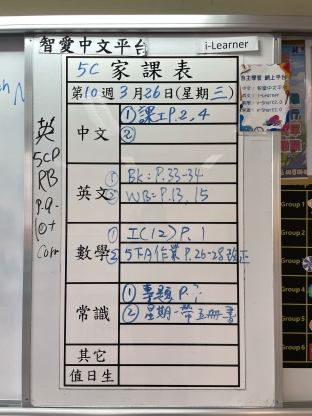 智愛中文平台
i-Learner
5C 家課表
第10週3月26日(星期三)
中文
① 課工P.2,4
②
英文
① BK:P.33-34
② WB:P.13,15
數學
① IC(12)P.1
② 5下A作業P.26-28改正
常識
① 專題P.7
② 星期一帶五冊書
其它
值日生
英
5CP
RB
P.9-
10+
Corr
自主學習 網上平台
Group 1
Group 2
Group 3
Group 4
Group 5
Group 6